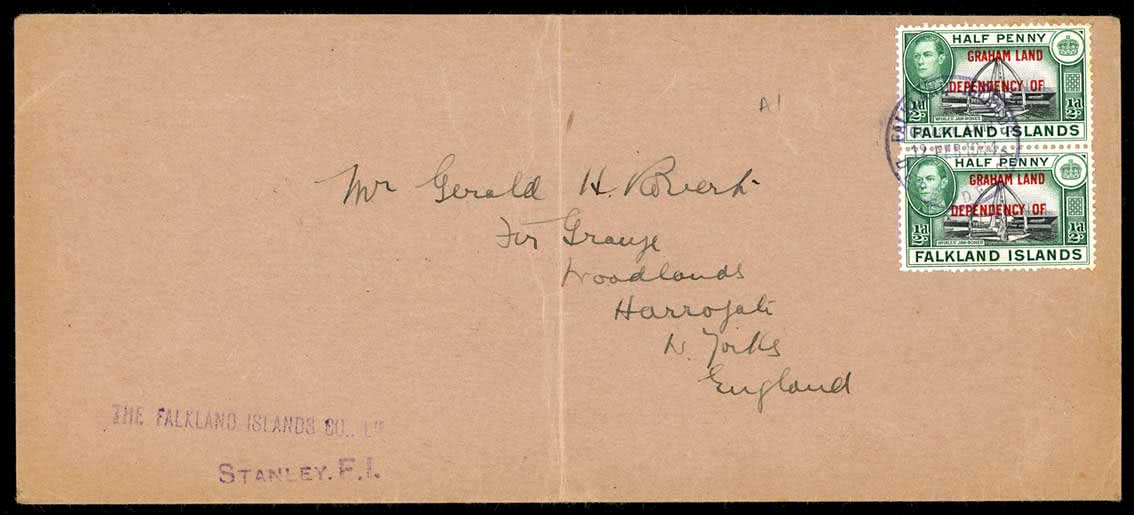 HALF PENNY
GRAHAM LAND
DEPENDENCY OF
½d ½d
WHALES' JAW-BONES
FALKLAND ISLANDS
HALF PENNY
GRAHAM LAND
DEPENDENCY OF
½d ½d
WHALES' JAW-BONES
FALKLAND ISLANDS
12 FEB
A1
Mr Gerald H.
Fir Grange
Woodlands
Harrogate
N. Yorks
England
THE FALKLAND ISLANDS CO., LTD
STANLEY. F.I.